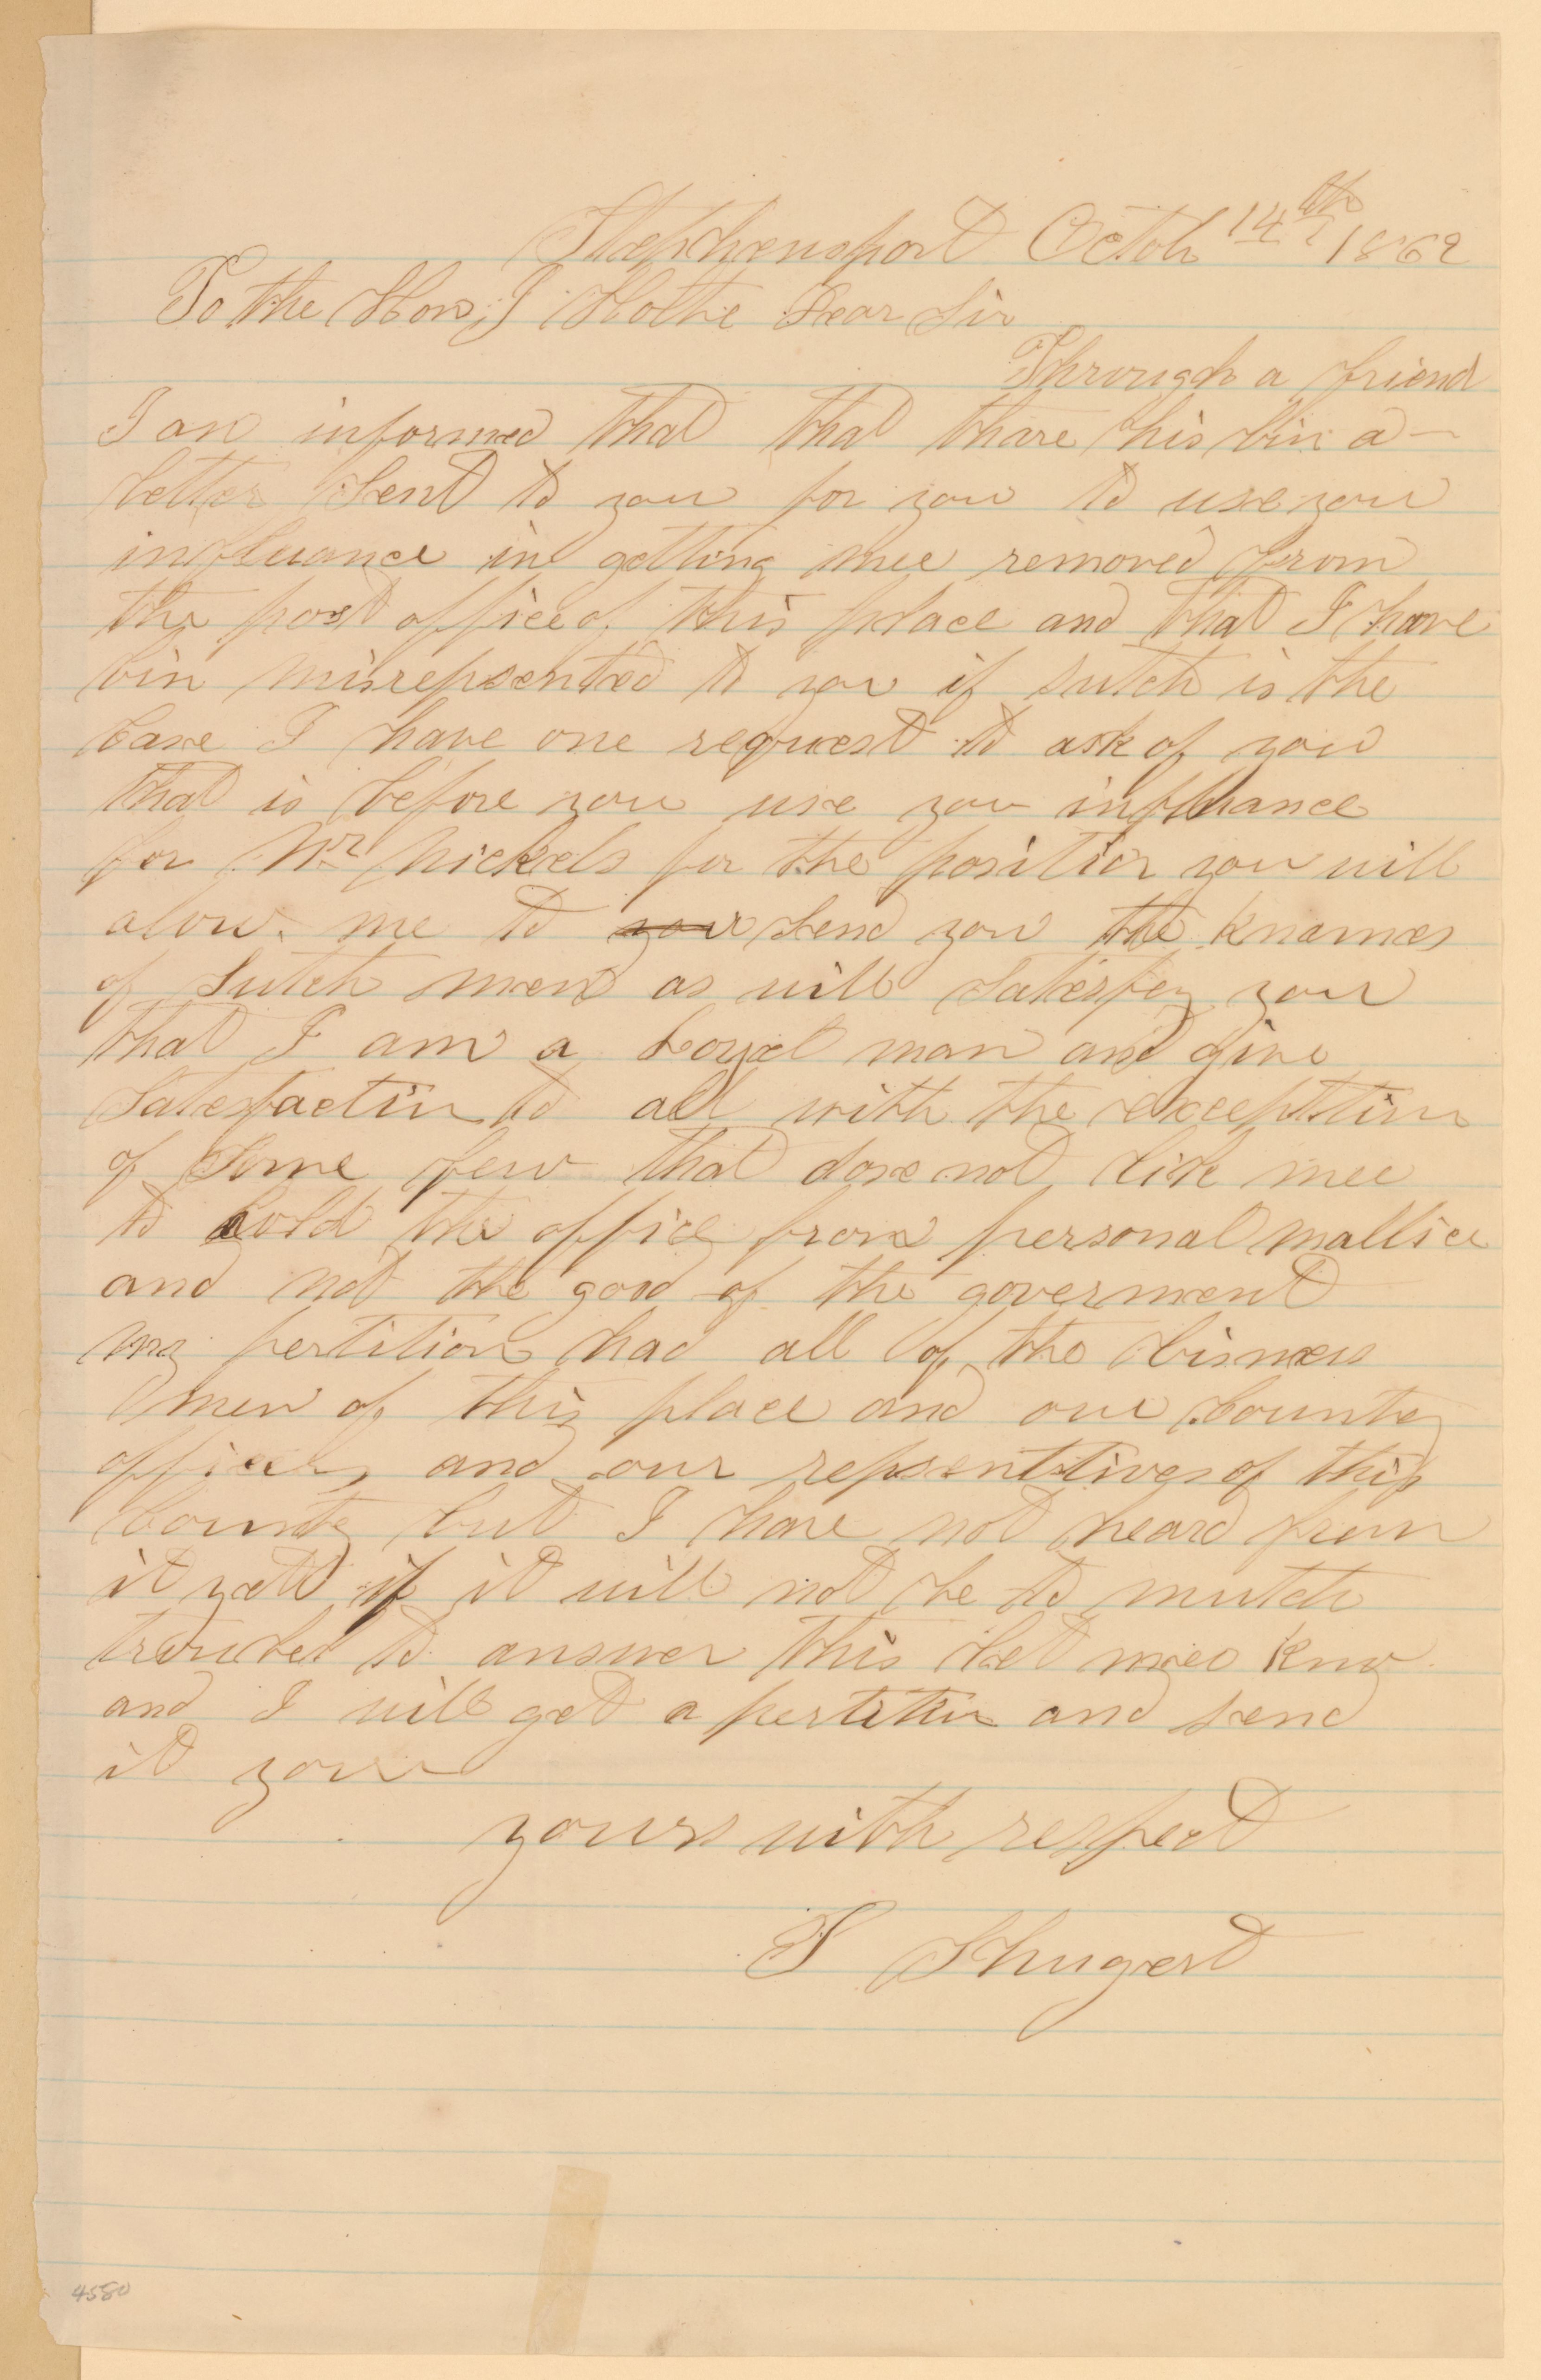 Stephensport Octob 14th 1862
To the Hon, J Holthe Dear Sir
Through a friend
I am informed that that thare his bin a
letter sent to you for you to use you
influance in getting mee removed from
the post office of this place and that I have
bin misrepsented to you if sutch is the
case I have one request to ask of you
that is before you use you influance
for Mr Nickels for the position you will
alow me to your send you the knames
of sutch men as will satesfey you
that I am a Loyal man and give
satesfaction to all with the exceptition
of some few that dose not like mee
to hold the office from personal mallice
and not the good of the goverment
my pertition had all of the bisness
men of this place and our county
officers and our repsentitives of this
county but I have not heard from
it yett if it will not be to mutch
trouble to answer this let mee know
and I will get a pertition and send
it you
yours with respect
T Shugert
4580